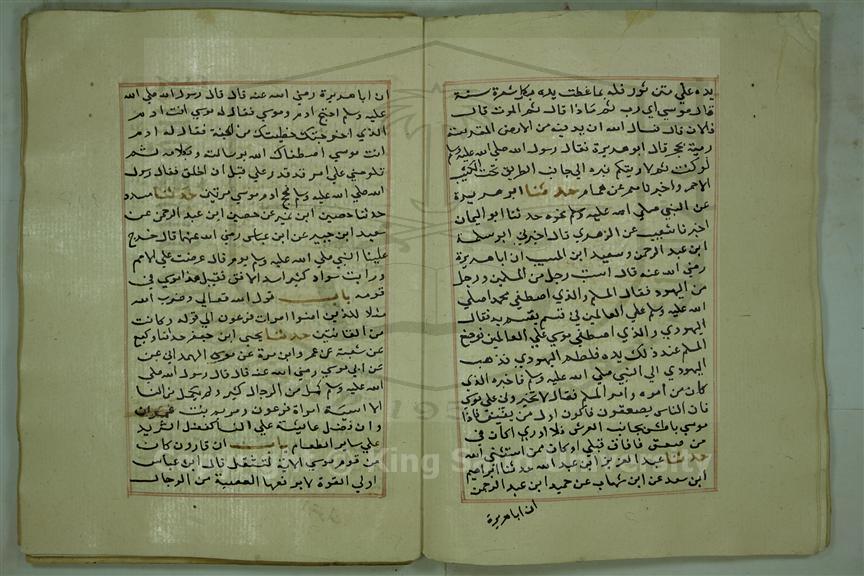 يده علي متن ثور فله بما غطت يده بكل شعرة سنة
قال موسي اي رب ثم ماذا قال ثم الموت قال
فالان قال فسال الله ان يدنيه من الارض المقدسة
رمية بحجر قال ابو هريرة فقال رسول الله صلي الله عليه وسلم
لو كنت ثم لاريتكم قبره الي جانب الطريق تحت الكثيب
الاحمر واخبرنا معمر عن همام حدثنا ابو هريرة
عن النبي صلي الله عليه وسلم نحوه حدثنا ابو اليمان
اخبرنا شعيب عن الزهري قال اخبرني ابو سلمة
ابن عبد الرحمن وسعيد ابن المسيب ان ابا هريرة
رضي الله عنه قال استب رجل من المسلمين ورجل
من اليهود فقال المسلم والذي اصطفي محمدا صلي
الله عليه وسلم علي العالمين في قسم يقسم به فقال
اليهودي والذي اصطفي موسي علي العالمين فرفع
المسلم عند ذلك يده فلطم اليهودي فذهب
اليهودي الي النبي صلي الله عليه وسلم فاخبره الذي
كان من امره وامر المسلم فقال لا تخيروني علي موسي
فان الناس يصعقون فاكون اول من يفيق فاذا
موسي باطش بجانب العرش فلا ادري اكان في
من صعق فافاق قبلي او كان ممن استثني الله
حدثنا عبد العزيز ابن عبد الله حدثنا ابراهيم
ابن سعد عن ابن شهاب عن حميد ابن عبد الرحمن
ان ابا هريرة
ان ابا هريرة رضي الله عنه قال قال رسول الله صلي الله
عليه وسلم احتج ادم وموسي فقال له موسي انت ادم
الذي اخرجتك خطيتك من الجنة فقال له ادم
انت موسي اصطفاك الله برسالته وبكلامه ثم
تلومني علي امر قد قدر علي قبل ان اخلق فقال رسول
الله صلي الله عليه وسلم فحج ادم موسي مرتين حدثنا مسدد
حدثنا حصين ابن نمير عن حصين ابن عبد الرحمن عن
سعيد ابن جبير عن ابن عباس رضي الله عنهما قال خرج
علينا النبي صلي الله عليه وسلم يوم قال عرضت علي الامم
ورايت سواد كثير اسد الافق فقيل هذا موسي في
قومه باب قول الله تعالي وضرب الله
مثلا للذين امنوا امرات فرعون الي قوله وكانت
من القانتين حدثنا يحيي ابن جعفر حدثنا وكيع
عن شعبة عن عمرو ابن مرة عن مرة الهمداني عن
عن ابي موسي رضي الله عنه قال قال رسول الله صلي
الله عليه وسلم كمل من الرجال كثير ولم يكمل من النسا
الا اسية امراة فرعون ومريم بنت عمران
وان فضل عائيشة علي النسا كفضل الثريد
علي ساير الطعام باب ان قارون كان
من قوم موسي الاية لتثقل قال ابن عباس
اولي القوة لا يرفعها العصبة من الرجال